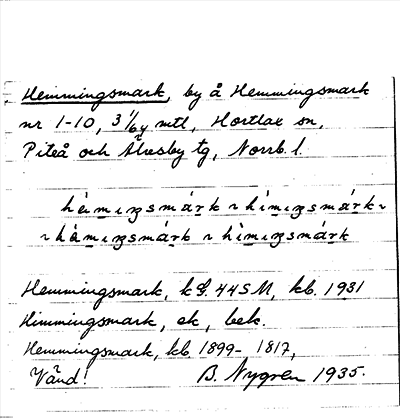 Hemmingsmark, by å Hemmingsmark
nr 1-10, 3 1/64 mtl, Hortlax sn,
Piteå och Älvsby tg, Norrb. l.
hèmıŋsmárk ~ hìmıŋsmárk ~
~ hä̀mıŋsmárk ~ hìmıŋsmárk
Hemmingsmark, 44 SM, kb. 1931
Himmingsmark, ek, bek.
Hemmingsmark, kb. 1899- 1817,
Vänd! B. Nygren 1935.